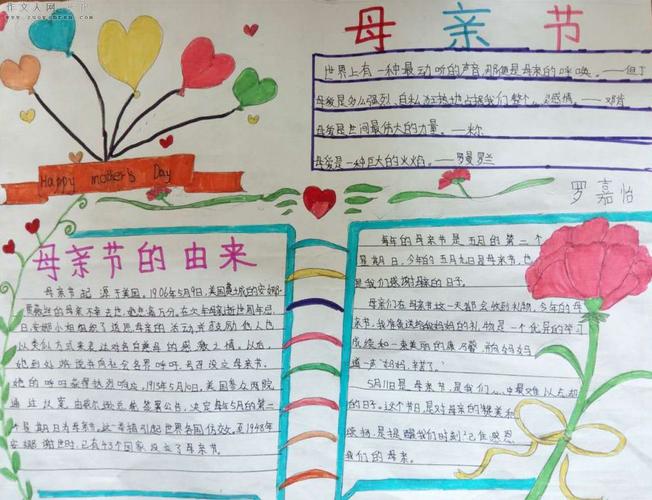 作文人网
www.zuowenren.com
母亲节
世界上有一种最动听的声音,那便是母亲的呼唤。——但丁
母爱是多么强烈、自私、狂热地占据我们整个心灵的感情。——邓肯
母爱是世间最伟大的力量。——米尔
母爱是一种巨大的火焰。——罗曼罗兰
Happy mother's Day
罗嘉怡
母亲节的由来
母亲节起源于美国。1906年5月9日,美国费城的安娜
的母亲不幸去世,她悲痛万分。在次年母亲逝世周年忌
日,安娜小姐组织了追思母亲的活动,并鼓励他人也
以类似方式来表达对各自慈母的感激之情。以后,
她到处游说并向社会各界呼吁,号召设立母亲节。
她的呼吁获得热烈响应。1913年5月10日,美国参众两院
通过议案,由威尔逊总统签署公书,决定每年5月的第二
个星期日为母亲节。这一举措引起世界各国仿效,至1948年
安娜谢世时,已有43个国家设立了母亲节。
每年的母亲节是五月的第二个
星期日,今年的五月九日是母亲节,也
是我们感谢母亲的日子。
母亲们在母亲节这一天都会收到礼物,今年的母
亲节,我准备送给我妈妈的礼物是一个优异的学习
成绩和一束美丽的康乃馨,向妈妈
道一声“妈妈,辛苦了。”
5月11日是母亲节,是我们心中最难以忘怀
的日子。这个节日,是对母亲的赞美和
颂扬,是提醒我们时刻记住感恩
我们的母亲。